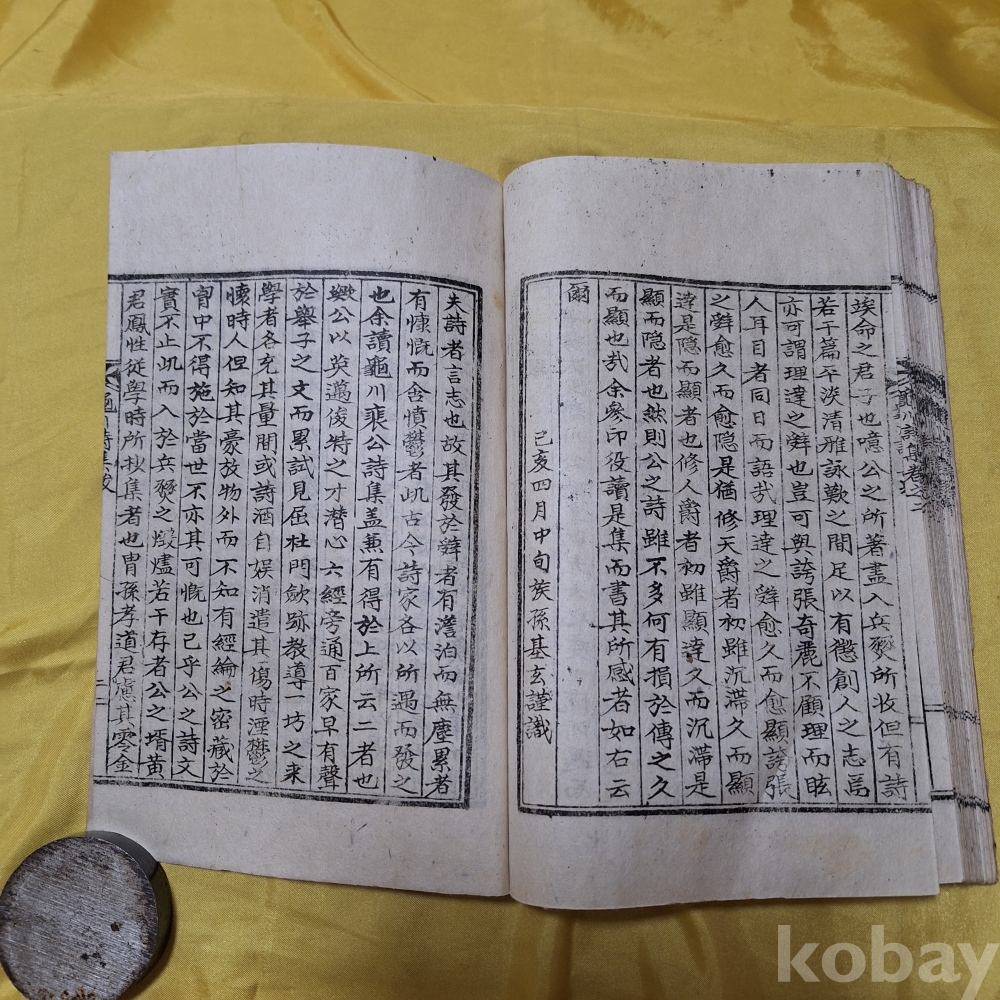 竢命之君子也噫公之所著盡入兵燹所收但有詩
若干篇平淡清雅詠歎之間足以有懲創人之志焉
亦可謂理達之辭也豈可與誇張奇麗不顧理而眩
人耳目者同日而語哉理達之辭愈久而愈顯誇張
之辭愈久而愈隐是猶修天爵者初雖沉滞久而顯
達是隐而顯者也修人爵者初雖顯達久而沉滞是
顯而隐者也然則公之詩雖不多何有損於傳之久
而顯也哉余參印役讀是集而書其所感者如右云
爾
己亥四月中旬族孫基玄謹識
夫詩者言志也故其發於辭者有澹泊而無塵累者
有慷慨而含憤鬱者此古今詩家各以所遇而發之
也余讀龜川裴公詩集盖蒹有得於上所云二者也
歟公以英邁俊特之才潜心六經旁通百家早有聲
於舉子之文而累試見屈杜門斂跡教導一坊之来
學者各充其量間或詩酒自娱消遣其傷時湮鬱之
懷時人但知其豪放物外而不知有經綸之密藏於
胷中不得施於當世不亦其可慨也已乎公之詩文
實不止此而入於兵燹之燬燼若干存者公之壻黄
君鳳性從學時所抄集者也胄孫孝道君慮其零金
龜川詩集跋
二
kobay